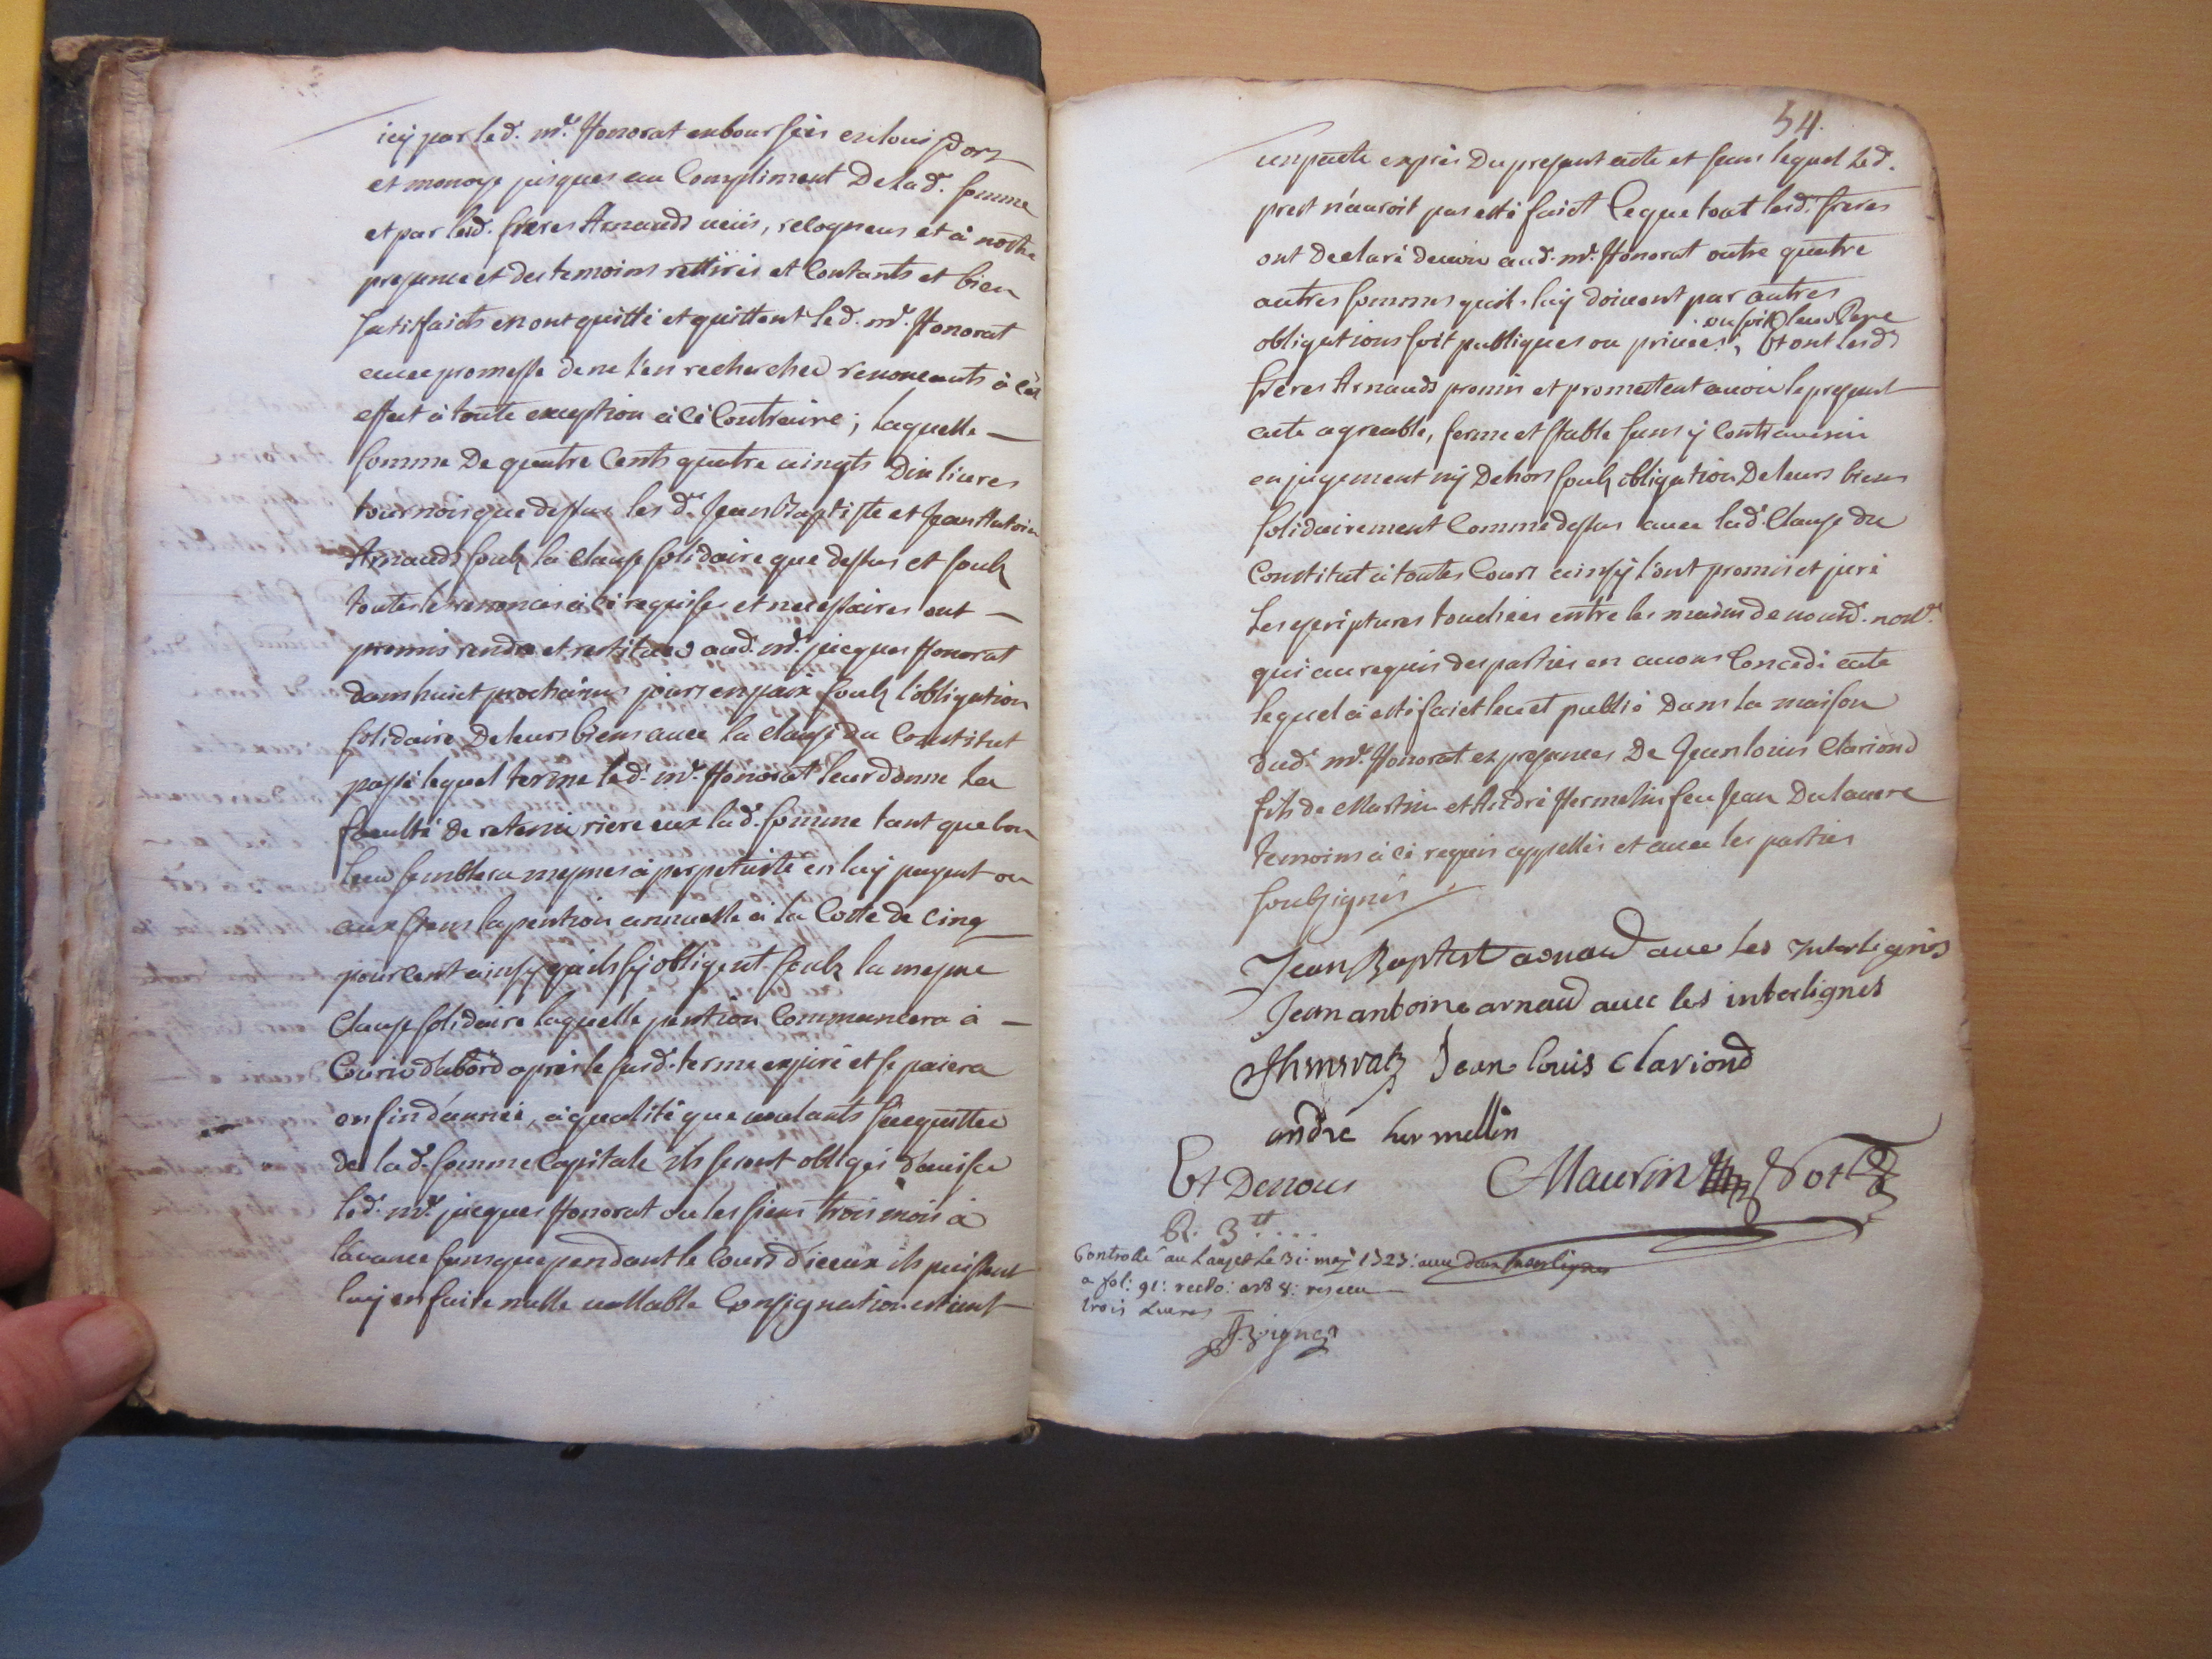 icy par led. mr. Honorat emboursées en louis d'ors
et monoye jusques au Compliment De lad. somme
et par lesd. freres Arnauds veüs, recogneus et à nostre
presance et des temoins rettirés et Contants et bien
satisfaicts en ont quitté et quittent led. mr. Honorat
avec promesse de ne l'en rechercher renonceants à cet
effect à toute exception à cé Contraire; laquelle
somme De quatre Cents quatre vingts Dix livres
tournois que dessus les d. Jean Baptiste et Jean Antoine
Arnauds soubz la clause solidaire que dessus et soubz
toutes les renonces à cé requises et necessaires ont
promis rendre et restituer aud. mr. jacques Honorat
dans huict prochains jours en paix soubz l'obligation
solidaire De leurs biens avec la clause du Constitut
passé lequel terme led. mr. Honorat leur donne la
faculté De retenir riere eux lad. somme tant que bon
leur semblera mesmes à perpetuité en luy payant ou
aux siens la pention annuelle à la Cotte de cinq
pour cent ainsy qu'ils s'y obligent soubz la mesme
Clause solidaire laquelle pention Commancera à
Courir d'abord après le susd. terme expiré et se paiera
en fin d'année, à qualité que voulants s'acquitter
de lad. somme Capitale ils seront obligés d'aviser
led. mr. jacques Honorat ou les siens trois mois à
l'avance sans que pendant le Cours d'iceux ils puissent
luy en faire nulle vallable Consignation estant
54.
un pacte exprès Du presant acte et sans lequel led.
prest n'auroit pas esté faict Ceque tout lesd. freres
ont Declaré devoir aud. mr. Honorat outre quatre
autres sommes qu'il luy doivent par autres
ou soit leur Pere
obligations soit publiques ou privées, Et ont lesd.
frères Arnauds promis et promettent avoir le presant
acte agreable, ferme et stable sans y Contrevenir
en jugement ny Dehors soubz obligation De leurs biens
solidairement Comme dessus avec lad. Clause du
Constitut à toutes Cours ainsy l'ont promis et juré
Les escriptures touchées entre les mains de nousd. notre.
qui au requis des parties en avons Concedé acte
lequel à esté faict leu et publié Dans la maison
dud. mr. Honorat ez presances De Jean louis Clariond
fils de Martin et André Hermelin feu Jean Dulauere
temoins à cé requis appellés et avec les parties
soubzignés
Jean Baptist arnaud avec les Interlignés
Jean antoine arnaud avec les interlignes
JHonorat Jean louis clariond
andre hermellin
Et De nous Maurin Notre
R. 3 tt ....
Controllé au Lauzet Le 31 may 1723: avec deux
a fol: 91: recto: art 8: reseu
trois Livres